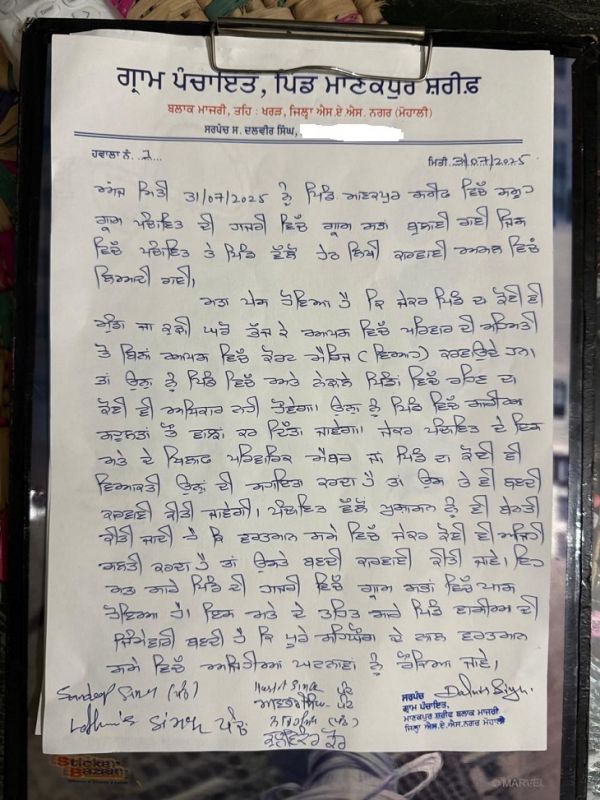 ਗ੍ਰਾਮ ਪੰਚਾਇਤ, ਪਿੰਡ ਮਾਣਕਪੁਰ ਸ਼ਰੀਫ਼
ਬਲਾਕ ਮਾਜਰੀ, ਤਹਿ : ਖਰੜ, ਜਿਲ੍ਹਾ ਐਸ.ਏ.ਐਸ. ਨਗਰ (ਮੋਹਾਲੀ)
ਸਰਪੰਚ ਸ. ਦਲਵੀਰ ਸਿੰਘ,
ਹਵਾਲਾ ਨੰ. 2 ਮਿਤੀ 31/07/2025
ਅੱਜ ਮਿਤੀ 31/07/2025 ਨੂੰ ਪਿੰਡ ਮਾਣਕਪੁਰ ਸ਼ਰੀਫ ਵਿੱਚ ਸਮੂਹ
ਗ੍ਰਾਮ ਪੰਚਾਇਤ ਦੀ ਹਾਜਰੀ ਵਿੱਚ ਗ੍ਰਾਮ ਸਭਾ ਬੁਲਾਈ ਗਈ ਜਿਸ
ਵਿੱਚ ਪੰਚਾਇਤ ਤੇ ਪਿੰਡ ਵੱਲੋਂ ਹੇਠ ਲਿਖੀ ਕਾਰਵਾਈ ਅਮਲ ਵਿੱਚ
ਲਿਆਂਦੀ ਗਈ।
ਮਤਾ ਪੇਸ਼ ਹੋਇਆ ਹੈ ਕਿ ਜੇਕਰ ਪਿੰਡ ਦਾ ਕੋਈ ਵੀ
ਮੁੰਡਾ ਜਾਂ ਕੁੜੀ ਘਰੋਂ ਭੱਜ ਕੇ ਆਪਸ ਵਿੱਚ ਪਰਿਵਾਰ ਦੀ ਸਹਿਮਤੀ
ਤੋਂ ਬਿਨਾਂ ਆਪਸ ਵਿੱਚ ਕੋਰਟ ਮੈਰਿਜ (ਵਿਆਹ) ਕਰਵਾਉਂਦੇ ਹਨ।
ਤਾਂ ਉਨਾਂ ਨੂੰ ਪਿੰਡ ਵਿੱਚ ਅਤੇ ਨੇੜਲੇ ਪਿੰਡਾਂ ਵਿੱਚ ਰਹਿਣ ਦਾ
ਕੋਈ ਵੀ ਅਧਿਕਾਰ ਨਹੀਂ ਹੋਵੇਗਾ। ਉਨਾਂ ਨੂੰ ਪਿੰਡ ਵਿੱਚ
ਸਹੂਲਤਾਂ ਤੋਂ ਵਾਂਝਾ ਕਰ ਦਿੱਤਾ ਜਾਵੇਗਾ। ਜੇਕਰ ਪੰਚਾਇਤ ਦੇ ਇਸ
ਮਤੇ ਦੇ ਖਿਲਾਫ ਪਰਿਵਾਰਿਕ ਮੈਂਬਰ ਜਾਂ ਪਿੰਡ ਦਾ ਕੋਈ ਵੀ
ਵਿਅਕਤੀ ਉਨਾਂ ਦੀ ਸਹਾਇਤਾ ਕਰਦਾ ਹੈ ਤਾਂ ਉਸ ਤੇ ਵੀ ਬਣਦੀ
ਕਾਰਵਾਈ ਕੀਤੀ ਜਾਵੇਗੀ। ਪੰਚਾਇਤ ਵੱਲੋਂ ਪ੍ਰਸ਼ਾਸਨ ਨੂੰ ਵੀ ਬੇਨਤੀ
ਕੀਤੀ ਜਾਂਦੀ ਹੈ ਕਿ ਵਰਤਮਾਨ ਸਮੇਂ ਵਿੱਚ ਜੇਕਰ ਕੋਈ ਵੀ ਅਜਿਹੀ
ਗਲਤੀ ਕਰਦਾ ਹੈ ਤਾਂ ਉਸਤੇ ਬਣਦੀ ਕਾਰਵਾਈ ਕੀਤੀ ਜਾਵੇ। ਇਹ
ਮਤਾ ਸਾਰੇ ਪਿੰਡ ਦੀ ਹਾਜਰੀ ਵਿੱਚ ਗ੍ਰਾਮ ਸਭਾ ਵਿੱਚ ਪਾਸ
ਹੋਇਆ ਹੈ। ਇਸ ਮਤੇ ਦੇ ਤਹਿਤ ਸਾਰੇ ਪਿੰਡ ਵਾਸੀਆਂ ਦੀ
ਜਿੰਮੇਵਾਰੀ ਬਣਦੀ ਹੈ ਕਿ ਪੂਰੇ ਸਹਿਯੋਗ ਦੇ ਨਾਲ ਵਰਤਮਾਨ
ਸਮੇਂ ਵਿੱਚ ਅਜਿਹੀਆਂ ਘਟਨਾਵਾਂ ਨੂੰ ਰੋਕਿਆ ਜਾਵੇ।
Sandeep Singh (ਪੰਚ)
Singh ਪੰਚ
ਸਰਪੰਚ Dalvir Singh
ਗ੍ਰਾਮ ਪੰਚਾਇਤ,
ਮਾਣਕਪੁਰ ਸ਼ਰੀਫ ਬਲਾਕ ਮਾਜਰੀ
ਜਿਲ੍ਹਾ ਐਸ.ਏ.ਐਸ.ਨਗਰ ਮੋਹਾਲੀ
Sticker Bazaar
© MARVEL